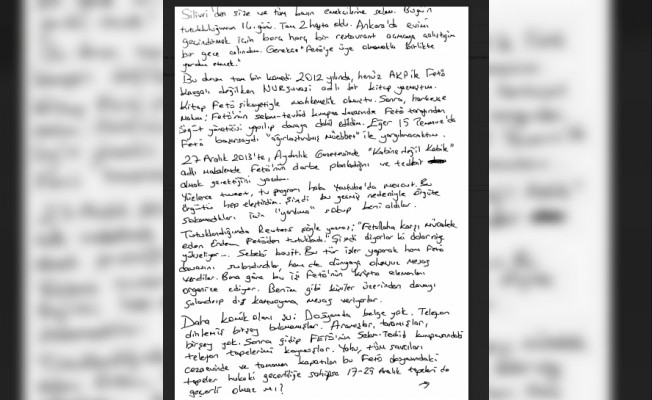 Silivri'den size ve tüm basın emekçilerine selam. Bugün
tutukluluğumun 14. günü. Tam 2 hafta oldu. Ankara'da evimi
geçindirmek için borç harç bir restaurant açmaya çalıştığım
bir gece alındım. Gerekçe "Fetö'ye üye olmamakla birlikte
yardım etmek."
Bu durum tam bir komedi. 2012 yılında, henüz AKP ile Fetö
kavgalı değilken NURjuvazi adlı bir kitap yazmıştım.
Kitap Fetö şikayetiyle mahkemelik olmuştu. Sonra, herkesçe
malum; Fetö'nün Selam-Tevhid kumpas davasında Fetö tarafından
örgüt yöneticisi yapılıp davaya dahil edildim. Eğer 15 Temmuz'da
Fetö başarsaydı "ağırlaştırılmış müebbet" ile yargılanacaktım.
27 Aralık 2013'te, Aydınlık Gazetesinde "Kabine değil Kabile"
adlı makalemde Fetö'nün darbe planladığını ve tedbir
almak gerektiğini yazdım.
Yüzlerce tweet, tv programı hala Youtube'da mevcut. Bu
örgütün hep eleştirdim. Şimdi bu geçmiş nedeniyle örgüte
sokamadıkları için "yardıma" sokup beni aldılar.
Tutuklandığımda Reuters şöyle yazmış; "Fetullaha karşı mücadele
eden Erdem Fetö'den tutuklandı." Şimdi diyorlar ki dolar niye
yükseliyor... Sebebi basit. Bu tür işler yaparak hem Fetö
davasını sulandırdılar, hem de dünyaya olumsuz mesaj
verdiler. Bana göre bu işi Fetö'nün kripto elemanları
organize ediyor. Benim gibi kişiler üzerinden davayı
sulandırıp dış kamuoyuna mesaj veriyorlar.
Daha komik olanı şu: Dosyamda belge yok. Telefon
dinlemiş birşey bulamamışlar. Aramışlar, taramışlar,
birşey yok. Sonra gidip FETÖ'nün Selam-Tevhid kumpasındaki
telefon tapelerini koymuşlar. Yahu, tüm savcıları
cezaevinde ve tamamen kapatılan bu Fetö dosyasındaki
tapeler hukuki geçerliliğe sahipse 17-25 Aralık tapeleri de
geçerli olmaz mı?